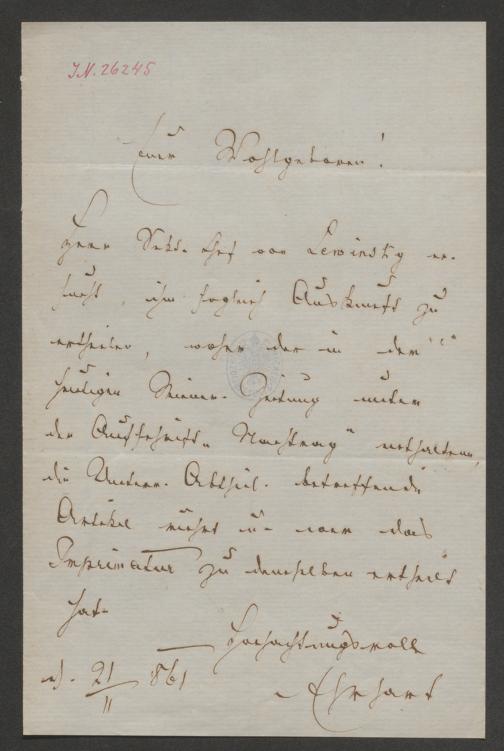 J.N. 26245
Euer Wohlgeboren!
Herr Sekt. Chef von Lewinsky er-
sucht, ihm sogleich Auskunft zu
ertheilen, woher der in der
heutigen Wiener-Zeitung unter
der Aufschrift „Nachtrag" enthaltene,
die Unterr. Abtheil. betreffende
Artikel rührt u. wer das
Imprimatur zu demselben ertheilt
hat.
Hochachtungsvoll
21/11 861
Ehrhart